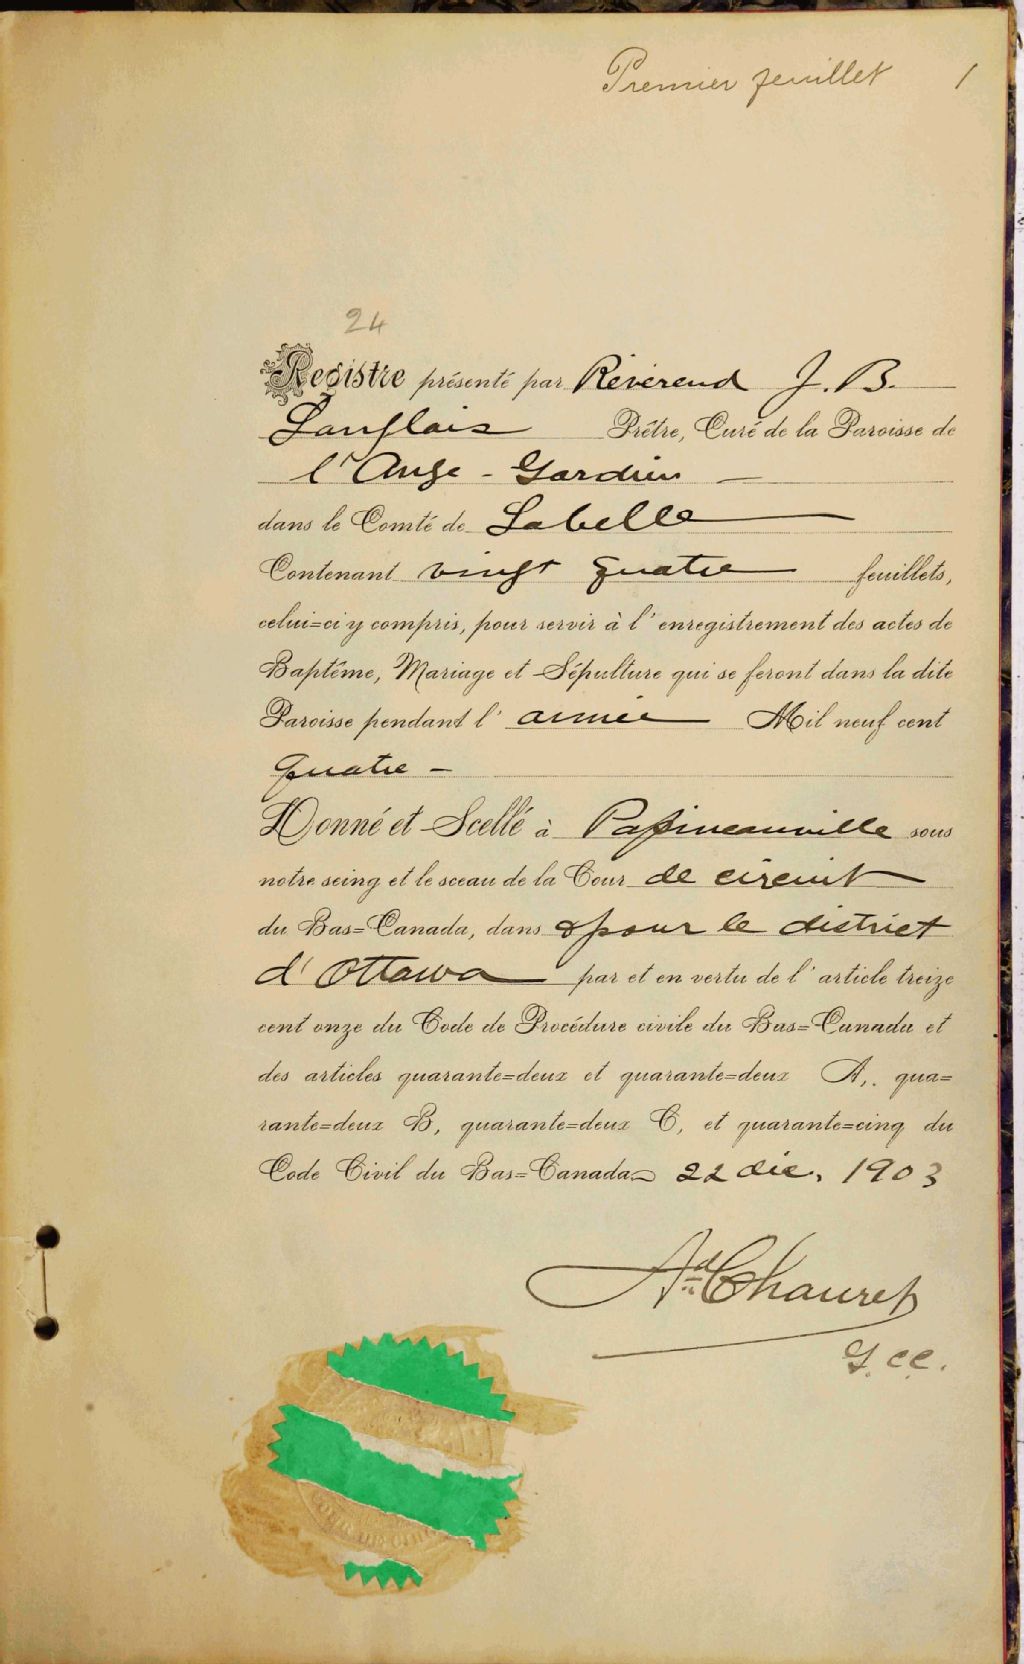 Premier feuillet 1
24
Registre présenté par Révérend J. B.
Langlais Prêtre, Curé de la Paroisse de
l'Ange-Gardien
dans le Comté de Labelle
Contenant vingt quatre feuillets,
celui=ci y compris, pour servir à l'enregistrement des actes de
Baptême, Mariage et Sépulture qui se feront dans la dite
Paroisse pendant l'année Mil neuf cent
quatre -
Donné et Scellé à Papineauville sous
notre seing et le sceau de la Cour de circuit
du Bas=Canada, dans & pour le district
d'Ottawa par et en vertu de l'article treize
cent onze du Code de Procédure civile du Bas=Canada et
des articles quarante=deux et quarante=deux A,. qua=
rante=deux B, quarante=deux C, et quarante=cinq du
Code Civil du Bas=Canada 22 déc. 1903
Ad Chauret
G.C.C.
COUR DE CIRC